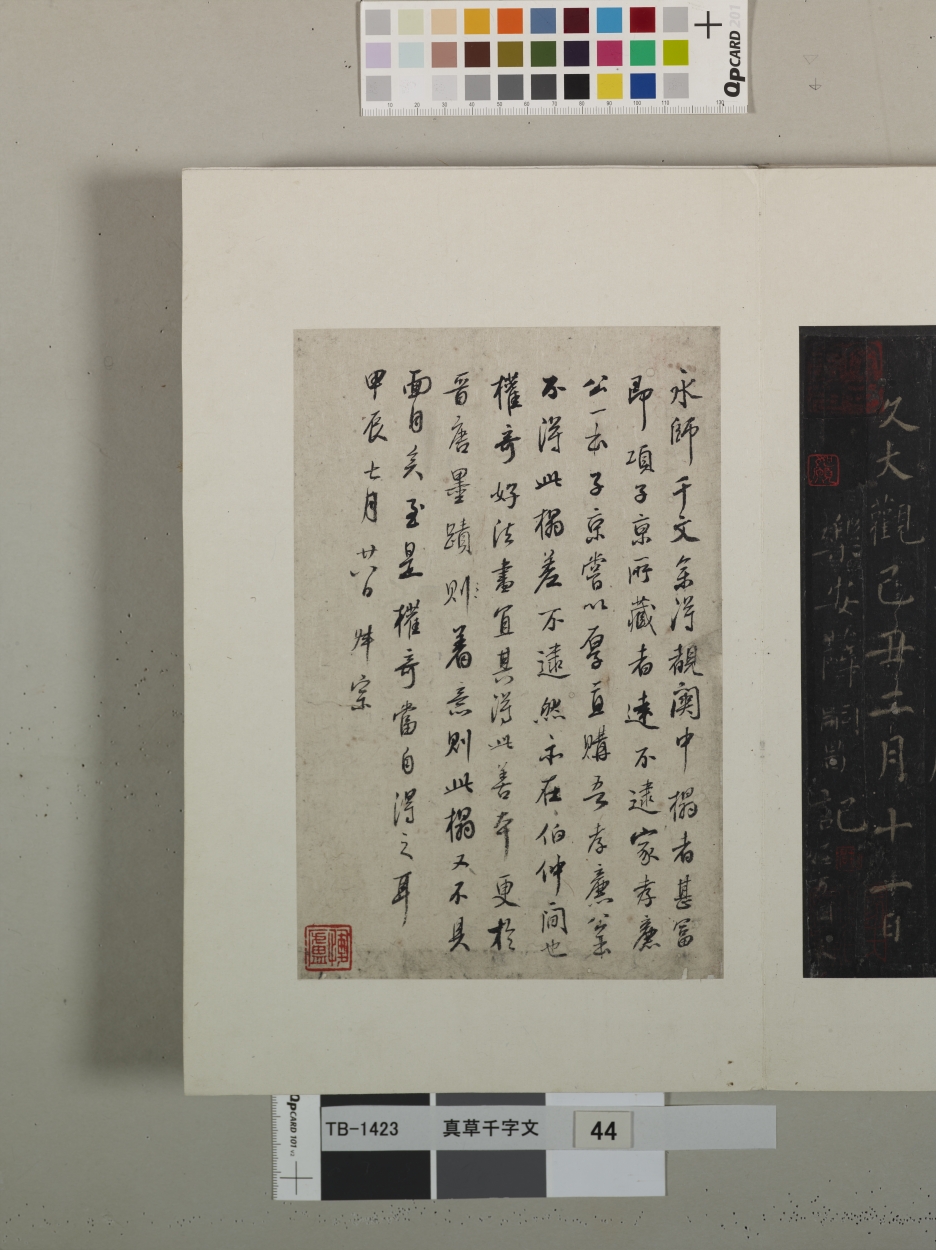 QPCARD 201
久大觀己丑二月十一日
樂安薛嗣昌記
永師千文余得覩關中榻者甚富
即項子京所藏者遠不逮家孝廉
公一本子京嘗以厚直購吾孝廉公案
不得此榻差不逮然亦在伯仲間也
權奇好法書宜其得此善本更於
晉唐墨蹟則〻著意則此榻又不具
面目矣至是權奇當自得之耳
甲辰七月廿八日 宗
QPCARD 101
TB-1423
真草千字文
44